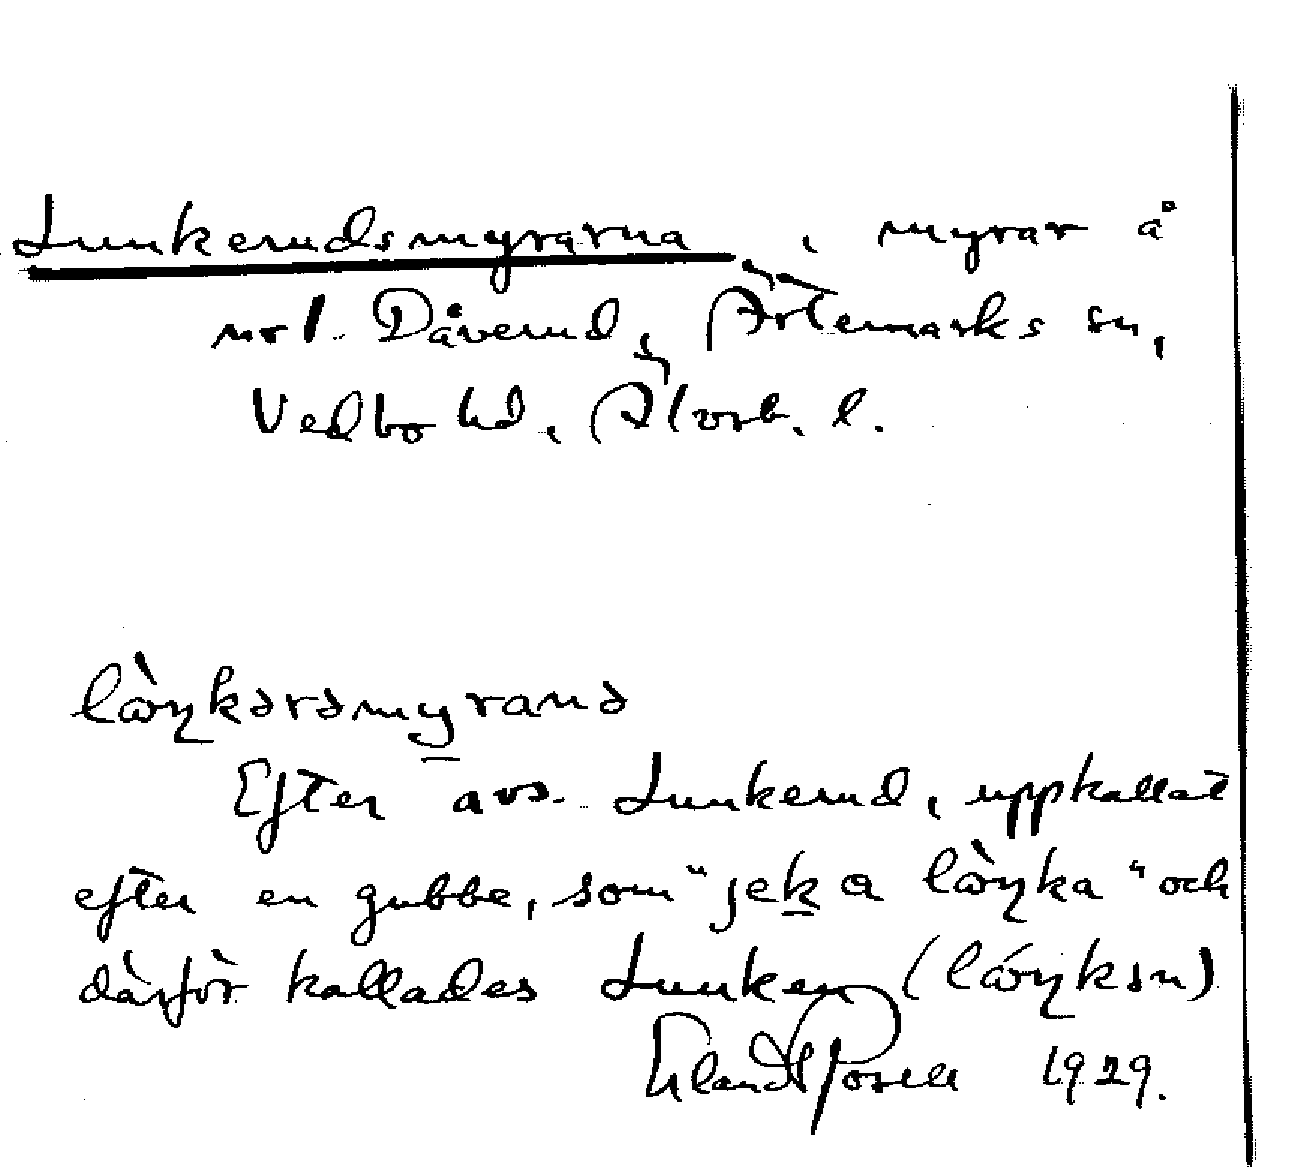 Lunkerudsmyrarna, myrar å
nrl. Dåverud, Ärtemarks sn,
Vedbo hd, Älvsb. l.
lò̱ŋkərsmyranə
Efter avs. Lunkerud, uppkallat
efter en gubbe, som "jek a lòŋka" och
därför kallades Lunken (lóŋkən)
Erland Rosell 1929.